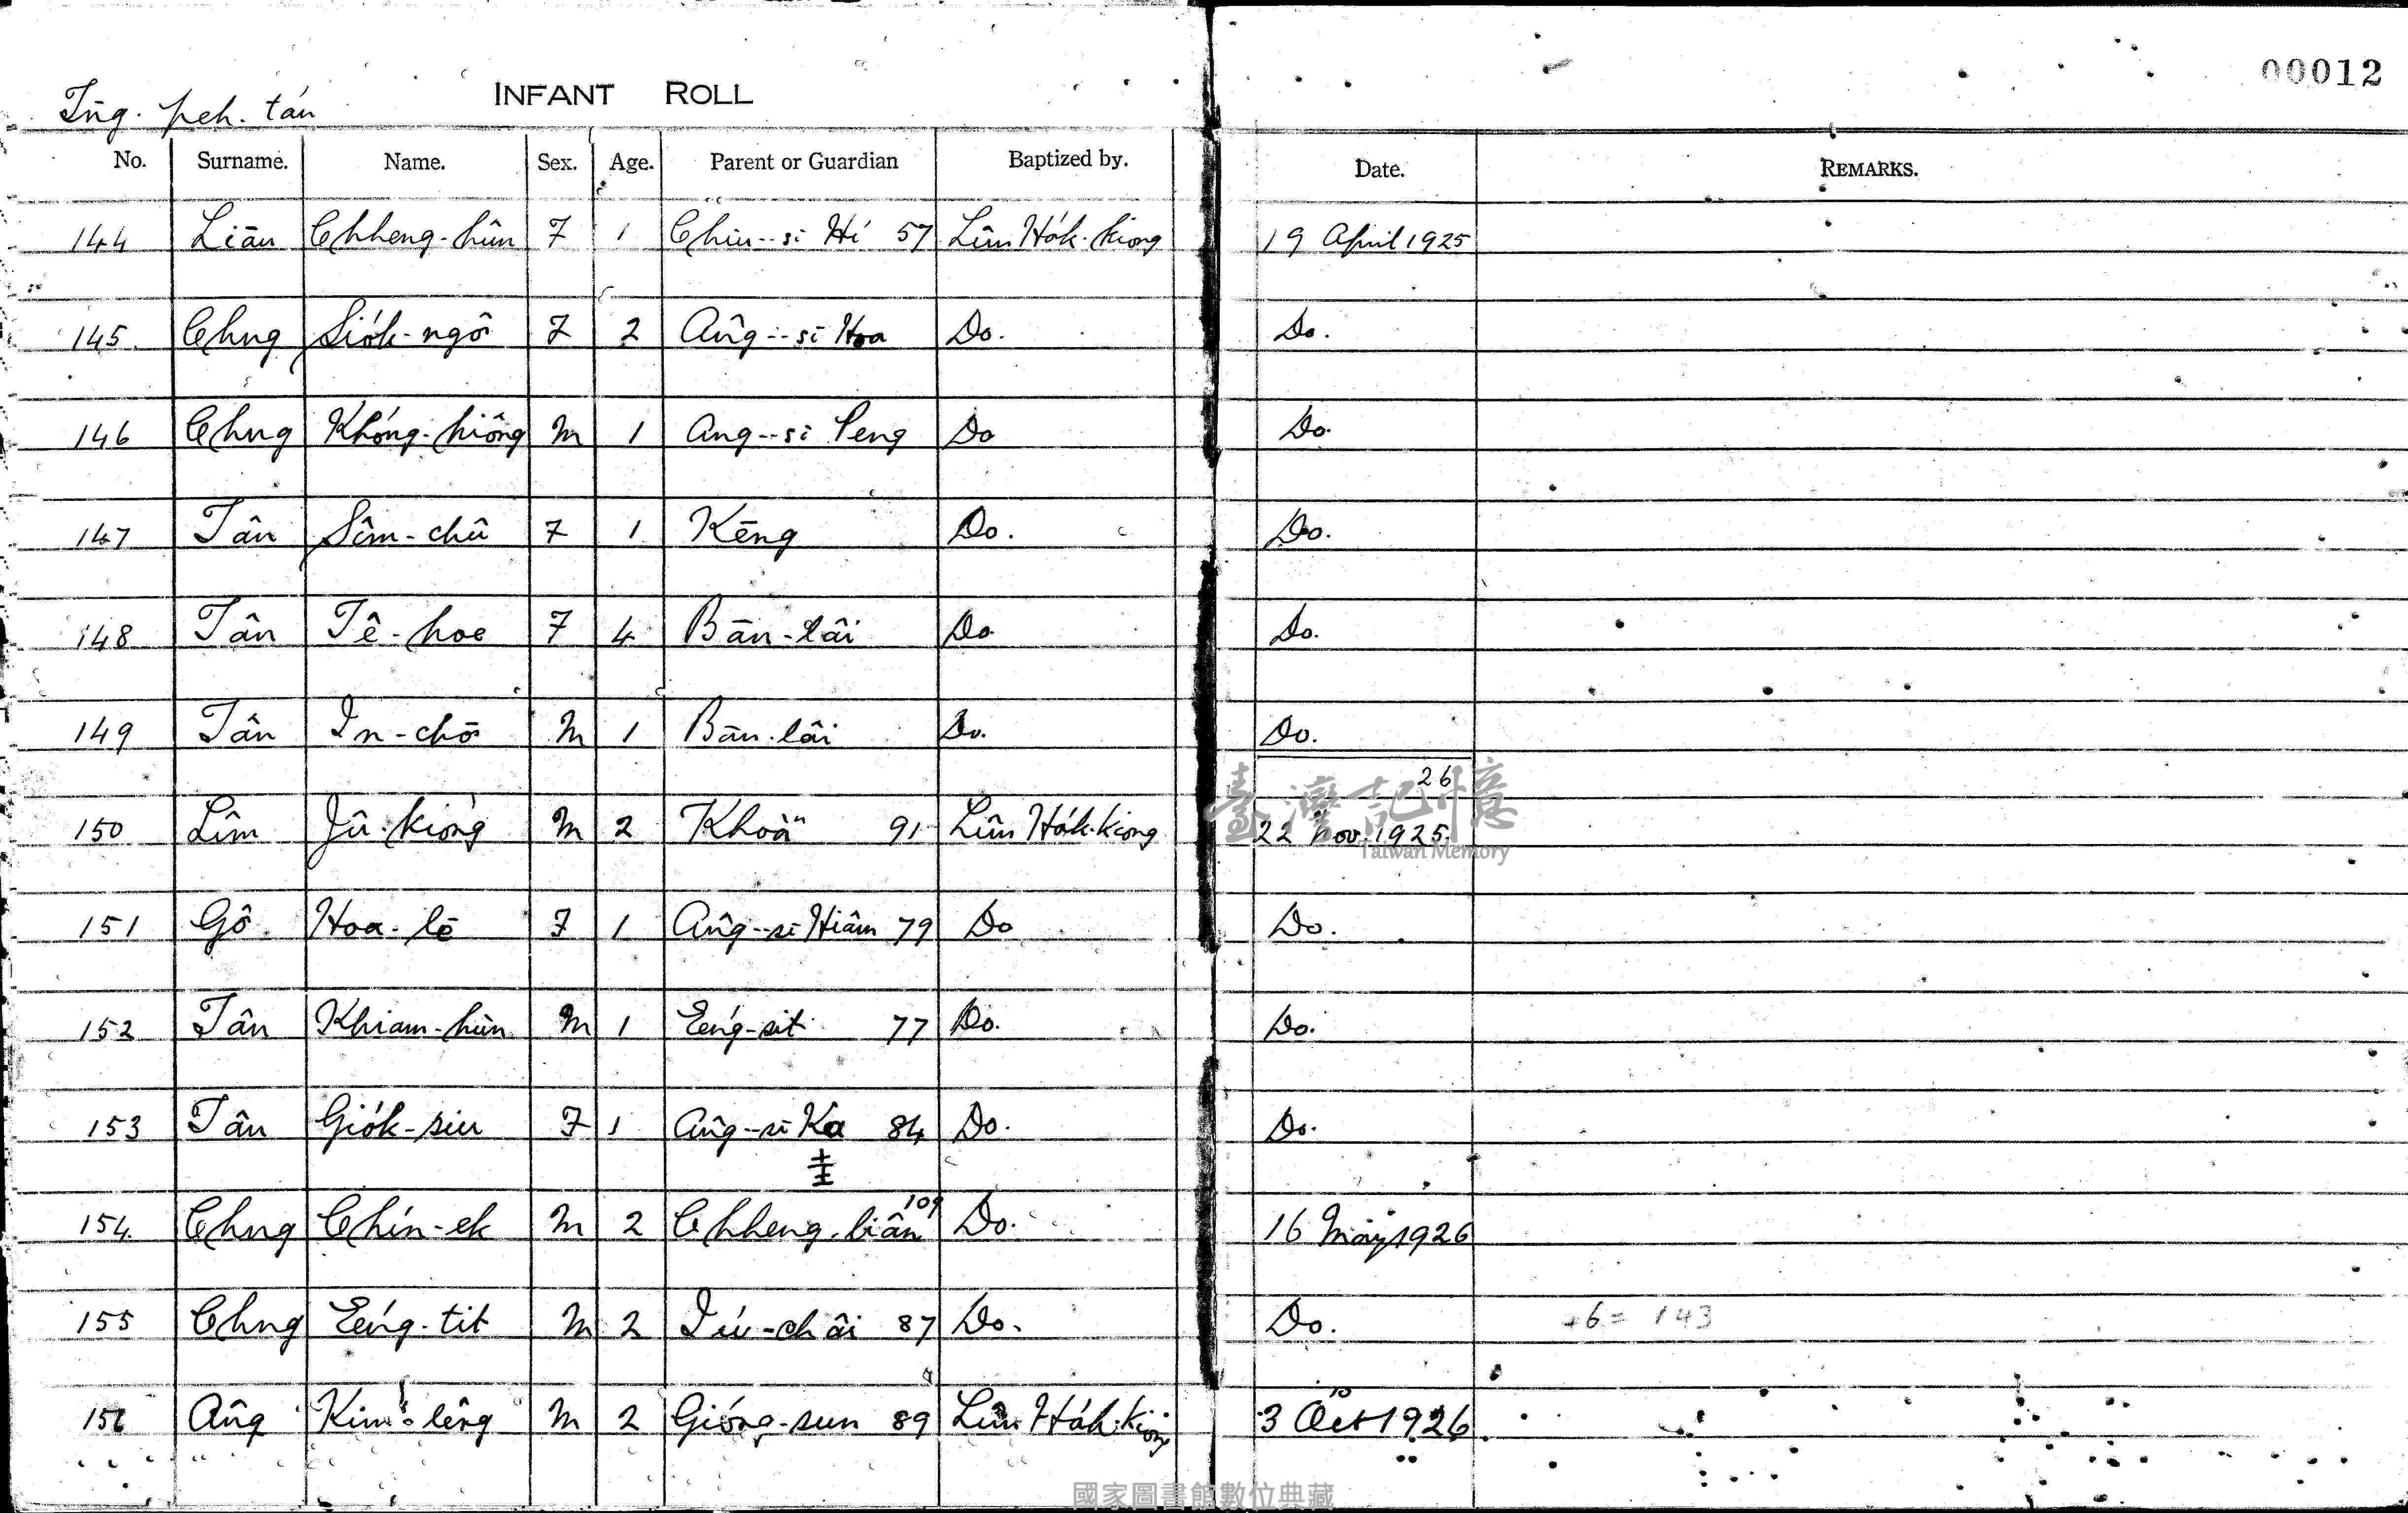 00012
Tn̄g-peh-tán INFANT ROLL
No. Surname. Name. Sex. Age. Parent or Guardian Baptized by. Date. REMARKS.
144 Liāu Chheng-hûn F 1 Chiu--sī Hí 57 Lîm Ha̍k-kiong 19 April 1925
145 Chng Sio̍k-ngô F 2 Âng--sī Hoa Do. Do.
146 Chng Khóng-hiông M 1 Ang--sī Peng Do Do.
147 Tân Sîm-chû F 1 Kēng Do. Do.
148 Tân Tê-hoe F 4 Bān-lâi Do. Do.
149 Tân In-chō M 1 Bān-lâi Do. Do.
26
150 Lîm Jû-kiong M 2 Khoàⁿ 91 Lîm Ha̍k-kiong 22 Nov. 1925.
151 Gô Hoa-lē F 1 Âng--sī Hiâm 79 Do Do.
152 Tân Khiam-hùn M 1 Eéng-sit 77 Do. Do.
153 Tân Gio̍k-siu F 1 Âng--sī Ka 84 Do. Do.
109
154. Chng Chín-ek M 2 Chheng-liân Do. 16 May 1926
155 Chng Eéng-tit M 2 Iú-châi 87 Do. Do. +6 = 143
156 Âng Kim-lêng M 2 Gióng-sun 89 Lîm Ha̍k-kiong 3 Oct 1926
臺灣記憶
Taiwan Memory
國家圖書館數位典藏